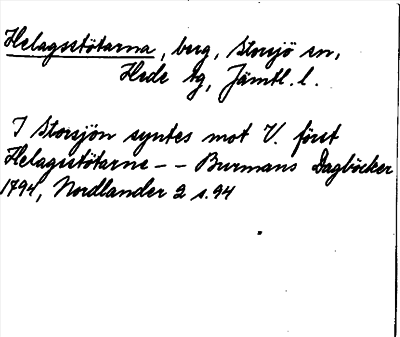 Helagsstötarna, berg, Storsjö sn,
Hede tg, Jämtl. l.
I Storsjön syntes mot V. först
Helagsstötarne - - Burmans Dagböcker
1794, Nordlander 2 s. 94